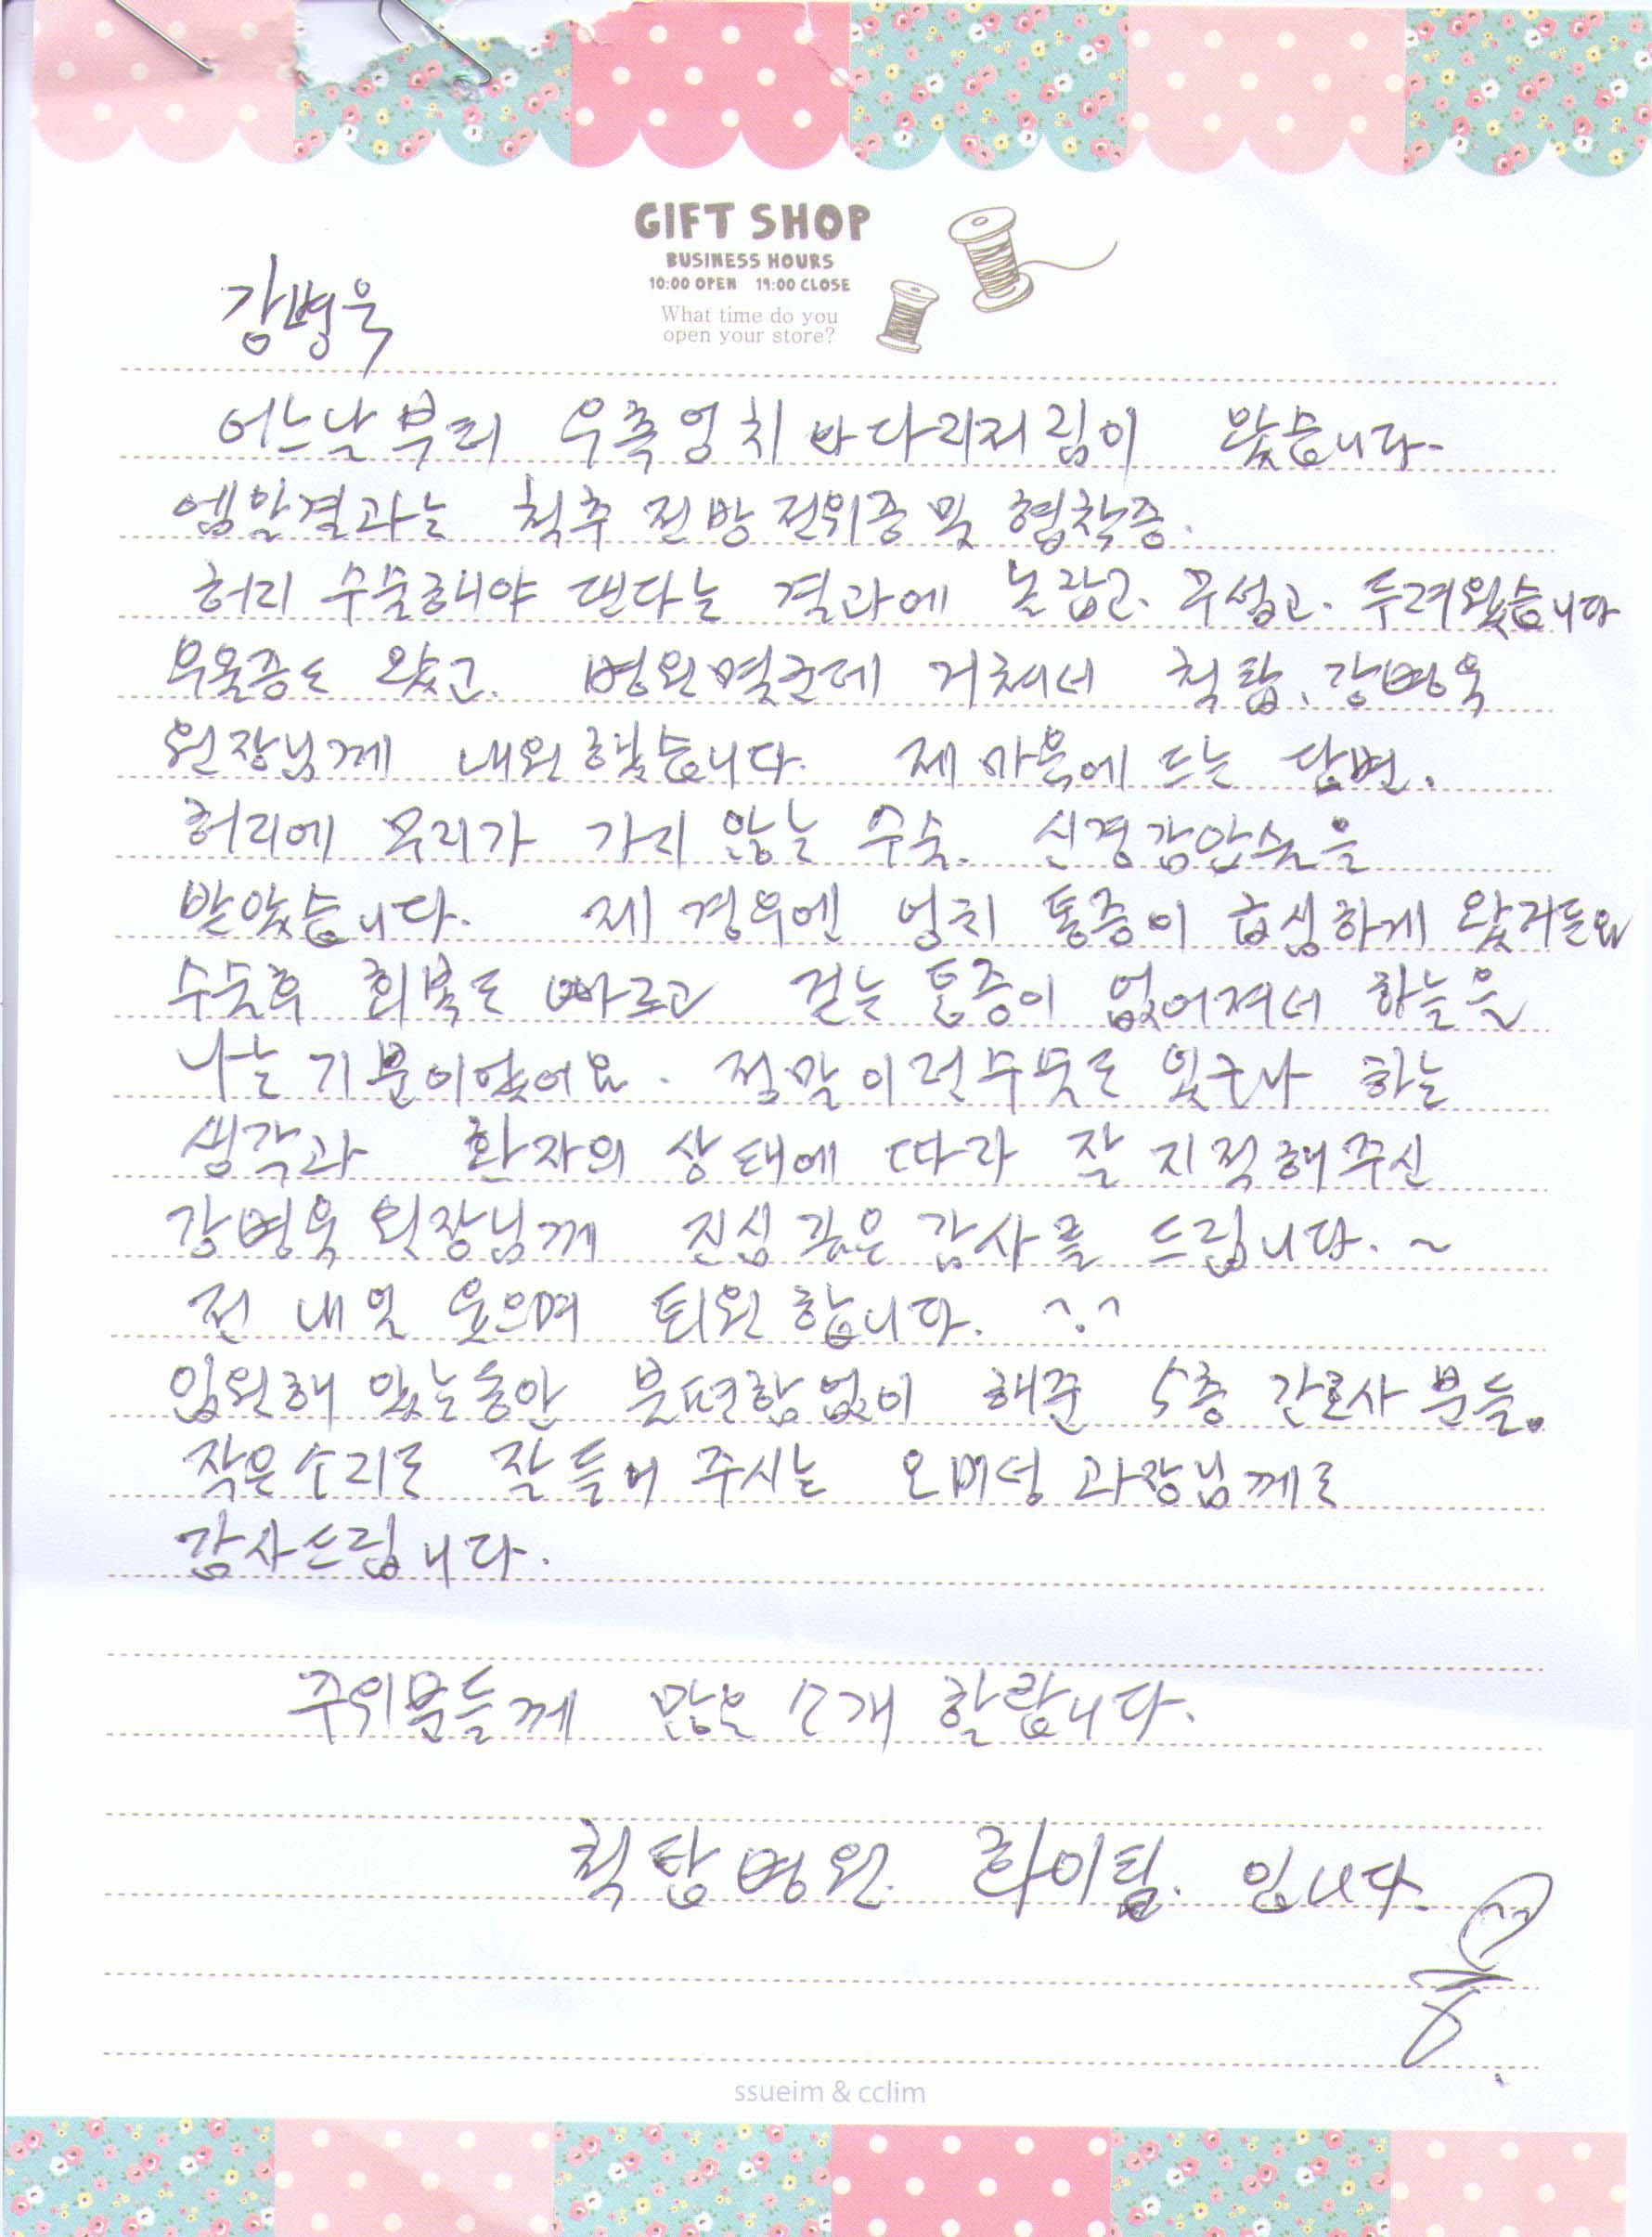 GIFT SHOP
BUSINESS HOURS
10:00 OPEN 19:00 CLOSE
What time do you
open your store?
강병욱
어느날부터 우측엉치 바다리저림이 왔습니다.
엠알결과는 척추 전방전위증 및 협착증.
허리 수술해야 댄다는 결과에 놀랍고. 무섭고. 두려웠습니다
우울증도 왔고. 병원몇군데 거쳐서 척탑. 강병욱
원장님께 내원했습니다. 제 마음에 드는 답변.
허리에 무리가 가지 않는 수술. 신경감압술을
받았습니다. 제 경우엔 엉치 통증이 급성하게 왔거든요
수술후 회복도 빠르고 걷는 통증이 없어져서 하늘을
나는 기분이였어요. 정말 이런수숫도 있구나 하는
생각과 환자의 상태에 따라 잘 지적해주신
강병욱 원장님께 진심 깊은 감사를 드립니다. ~
전 내일 웃으며 퇴원합니다. ^.^
입원해 있는동안 불편함없이 해준 5층 간호사분들.
작은소리도 잘 들어 주시는 오미덩 과장님께도
감사드립니다.
주위분들께 많은 소개 할랍니다.
척탑병원. 화이팅. 입니다.
ssueim & cclim